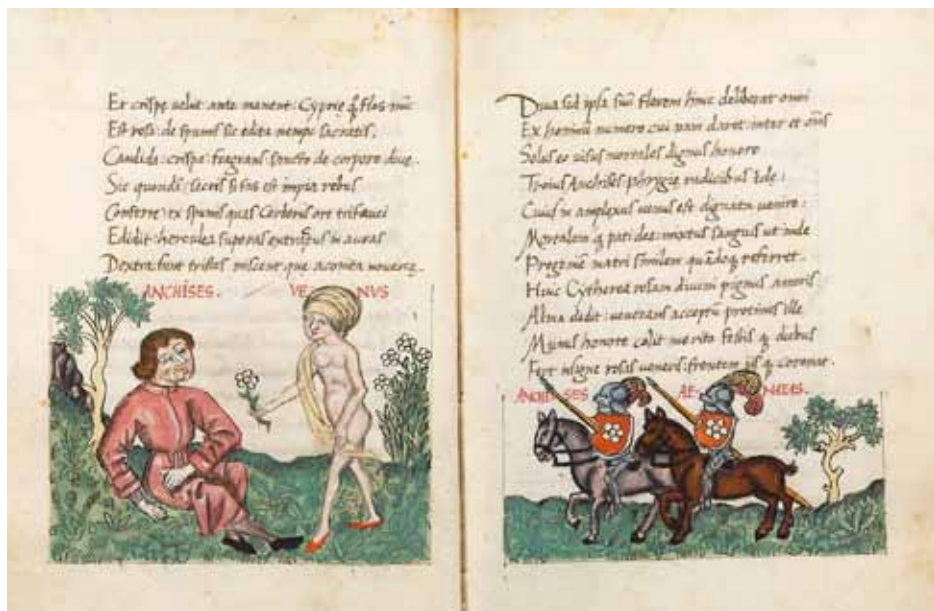 Et crispe velut ante manent: Cyprię flos
Est rosa: de spumis sic edita nempe sacratis.
Candida: crispa: fragrans: sancto de corpore divę.
Sic quondã: sacris si fas est impia rebus
Conferre: ex spumis quas Cerberus ore trifauci
Edidit: herculea superas in auras
Dextra: sunt tristes miscent que aconita novercę.
ANCHISES. VENVS
Diva sed ipsa suũ florem hinc deliberat omni
Ex hominũ numero cui nam daret: inter et oẽs
Solus eo visus mortales dignus honore
Troius Anchises phrygię radicibus Idę:
Cuius in amplexus venus est dignata venire:
Mortalem q pati dea: mixtus sanguis ut inde
Progeniẽ matri similem quãdoq referret.
Huic Cytherea rosam divini pignus amoris
Alma dedit: venerans acceptũ protinus ille
Munus honore colit merito festis q diebus
Fert insigne rosas veneris: frontem q coronat.
ANCHISES AENEAS.